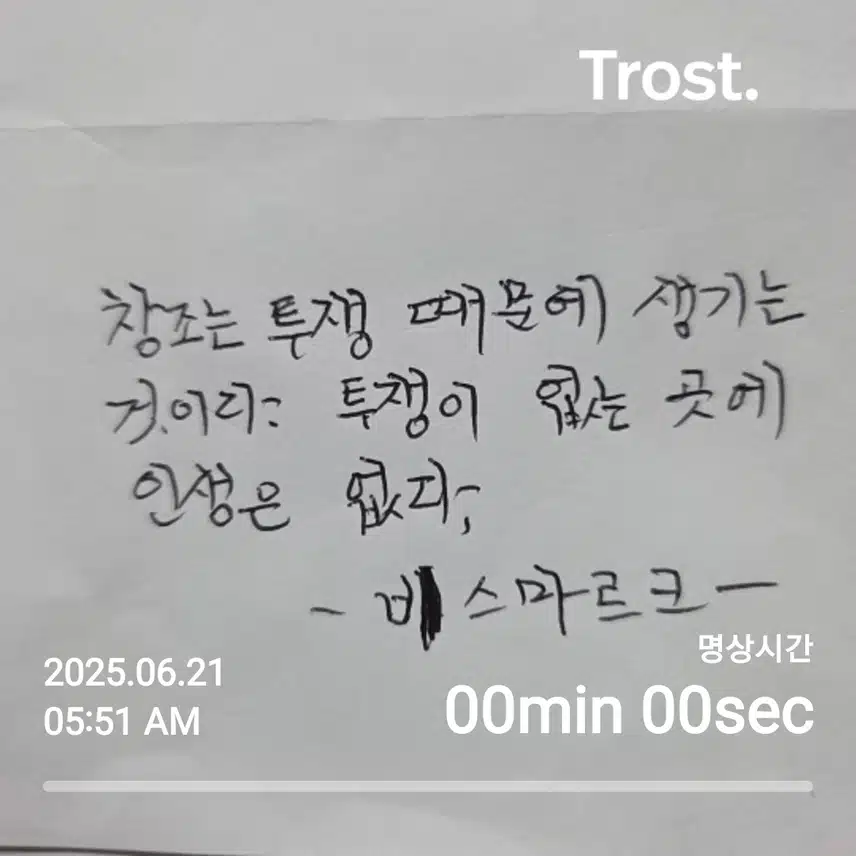 Trost.
창조는 투쟁 때문에 생기는
것이다. 투쟁이 없는 곳에
인생은 없다.
- 비스마르크 -
명상시간
2025.06.21
05:51 AM
00min 00sec